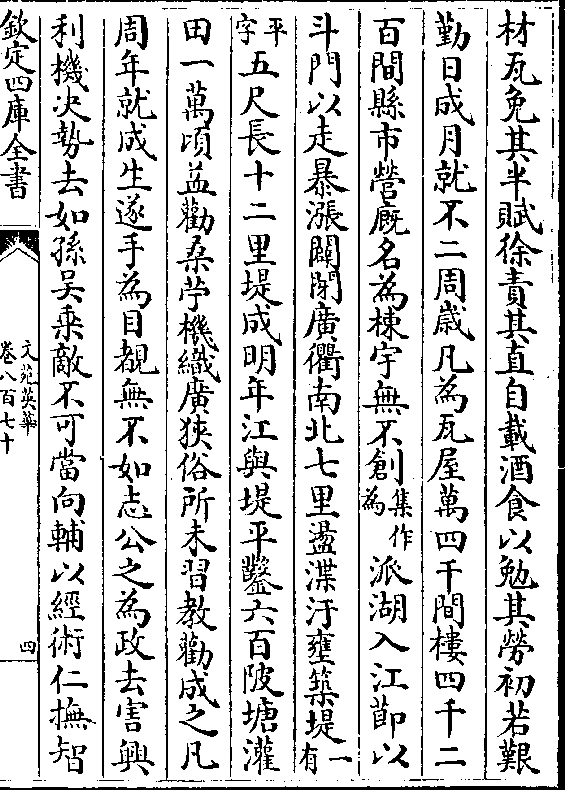 材瓦免其半賦徐責其直自載酒食以勉其勞初若艱
勤日成月就不二周歲凡為瓦屋萬四千間樓四千二
百間縣市營廐名為棟宇無不創集作為派湖入江節以
斗門以走暴漲闢開廣衢南北七里盪渫汙壅築堤一有
平字五尺長十二里堤成明年江與堤平鑿六百陂塘灌
田一萬頃益勸桑苧機織廣狹俗所未習教勸成之凡
周年就成生遂手為目覩無不如志公之為政去害興
利機决勢去如孫吳乘敵不可當向輔以經術仁撫智
欽定四庫全書
文苑英華
卷八百七十
四